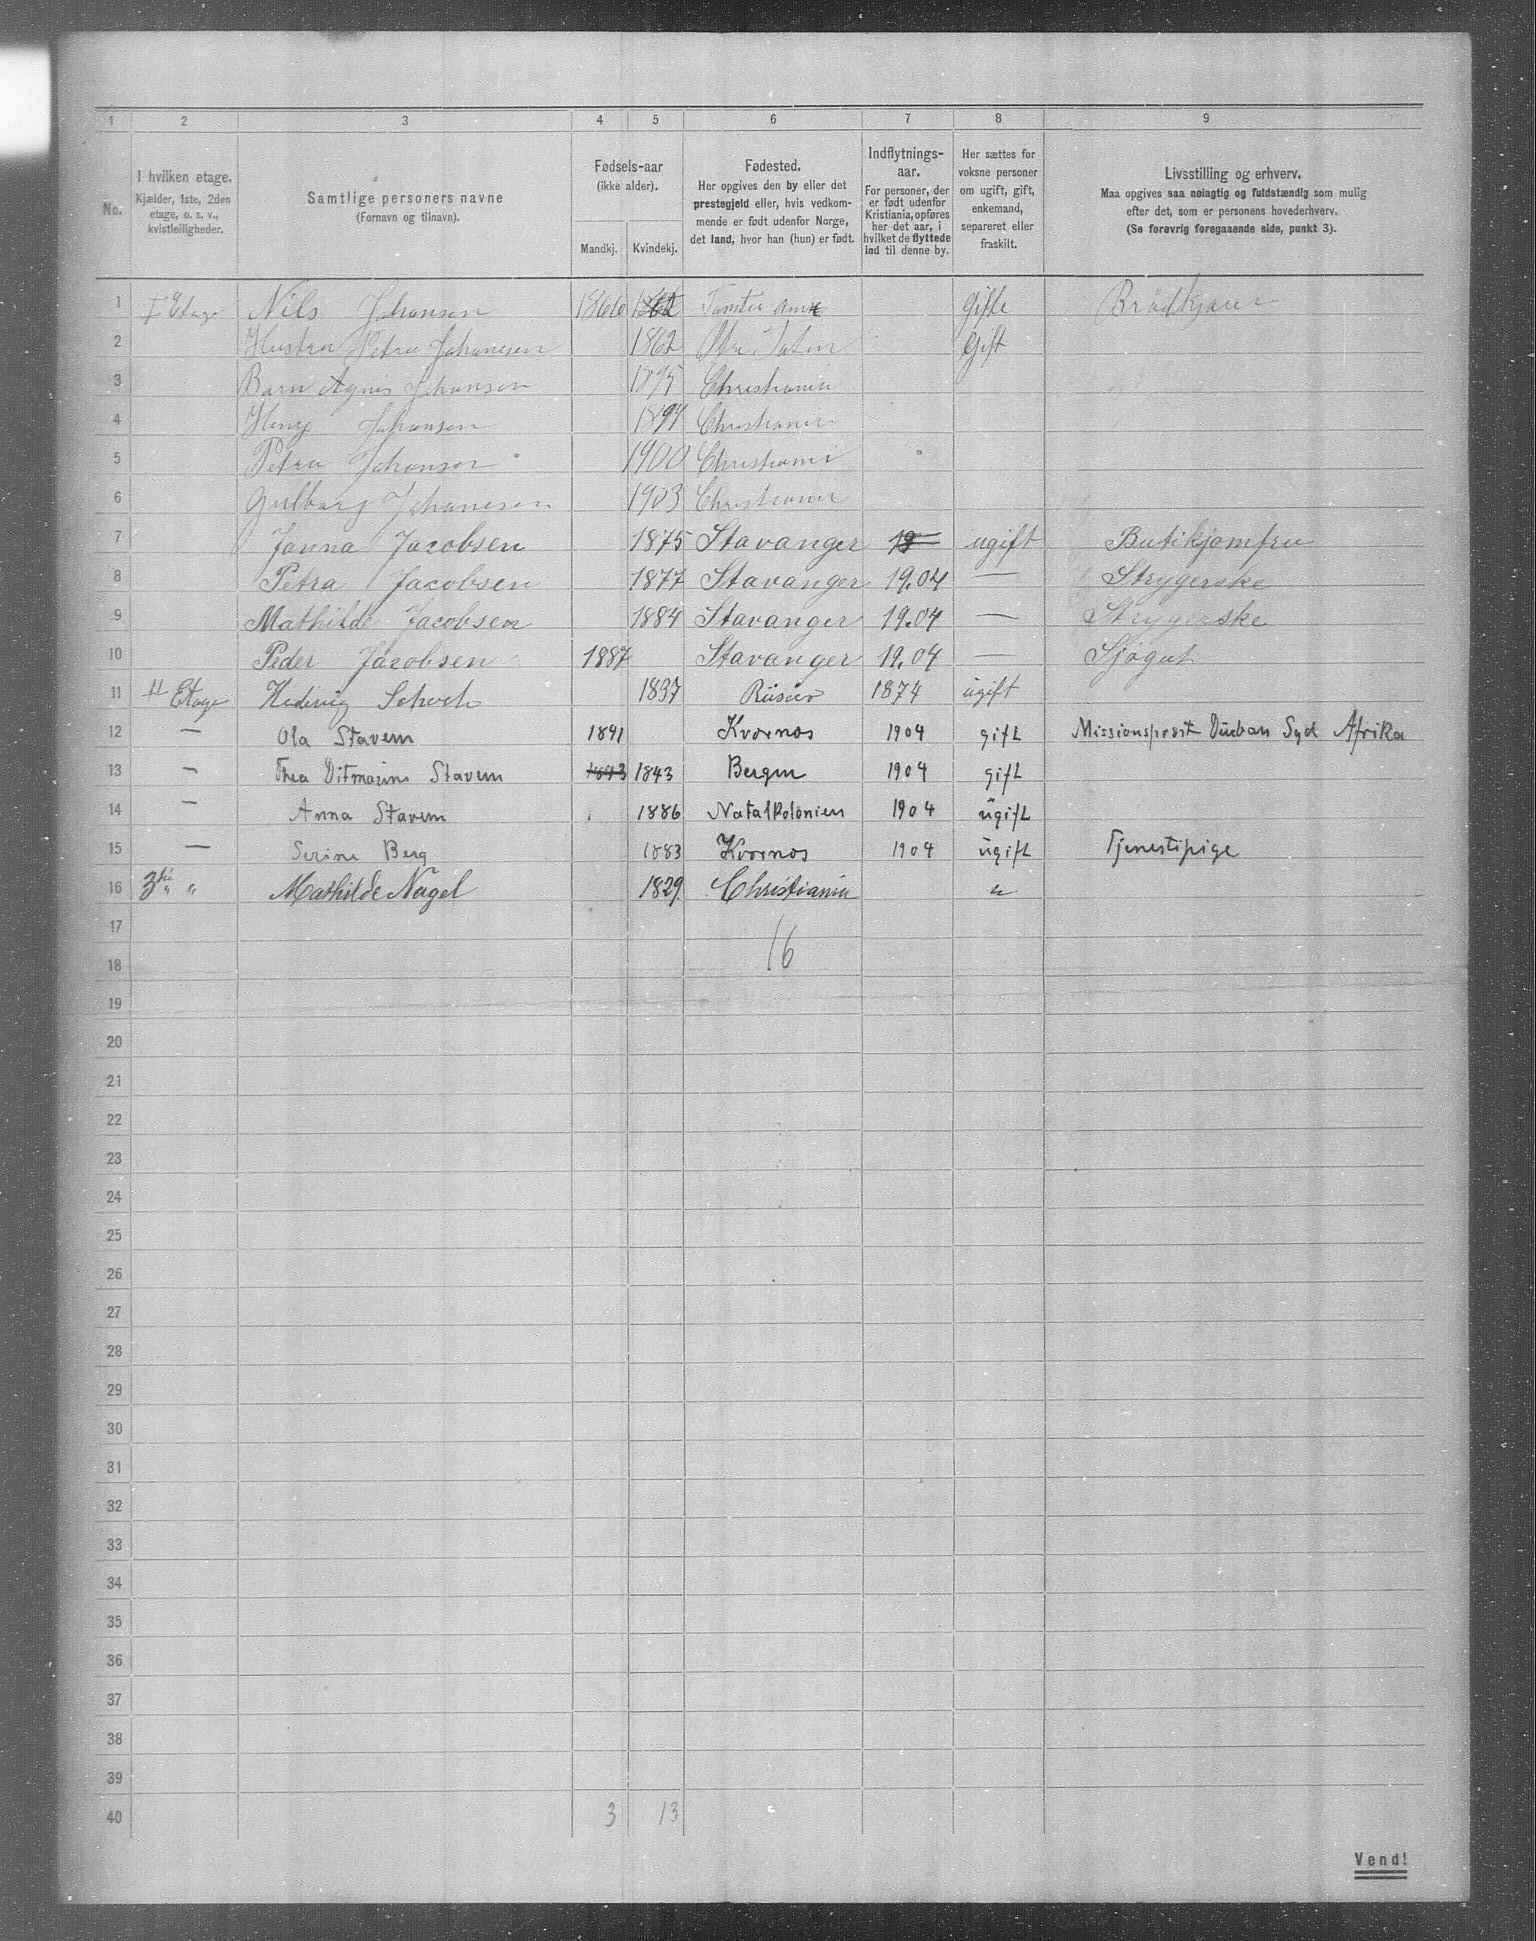 1 2 3 4 5 6 7 8 9
No.
I hvilken etage.
Kjælder, 1ste, 2den
etage, o. s. v.,
kvistleiligheder.
Samtlige personers navne
(Fornavn og tilnavn).
Fødsels-aar
(ikke alder).
Mandkj. Kvindekj.
Fødested.
Her opgives den by eller det
prestegjeld eller, hvis vedkom-
mende er født udenfor Norge,
det land, hvor han (hun) er født.
Indflytnings-
aar.
For personer, der
er født udenfor
Kristiania, opføres
her det aar, i
hvilket de flyttede
ind til denne by.
Her sættes for
voksne personer
om ugift, gift,
enkemand,
separeret eller
fraskilt.
Livsstilling og erhverv.
Maa opgives saa nøiagtig og fuldstændig som mulig
efter det, som er personens hovederhverv.
(Se forøvrig foregaaende side, punkt 3).
1 I Etage Nils Johansen 1866 1862 Gifte
2 Hustru Petra Johannesen 1862 Gift
3 Barn Agnes Johansen 1895 Christiania
4 Johansen 1897 Christiania
5 Petra Johansen 1900 Christiania
6 Johannesen 1903 Christiania
7 Janna Jacobsen 1875 Stavanger 19 ugift Butikjomfru
8 Petra Jacobsen 1877 Stavanger 19.04 — Strygerske
9 Mathilde Jacobsen 1884 Stavanger 19.04 — Strygerske
10 Peder Jacobsen 1887 Stavanger 19.04 — Sjøgut
11 II Etage Hedevig 1837 Risør 1874 ugift
12 — Ola Stavem 1841 Kvornes 1904 gift Missionsprest Durban Syd Afrika
13 — Thea Ditmarine Stavem 1843 1843 Bergen 1904 gift
14 — Anna Stavem 1886 Natalkolonien 1904 ugift
15 — Serine Berg 1883 Kvornes 1904 ugift Tjenestipige
16 3die " " Mathilde Nagel 1829 Christiania "
17
16
18
19
20
21
22
23
24
25
26
27
28
29
30
31
32
33
34
35
36
37
38
39
40 3 13
Vend!